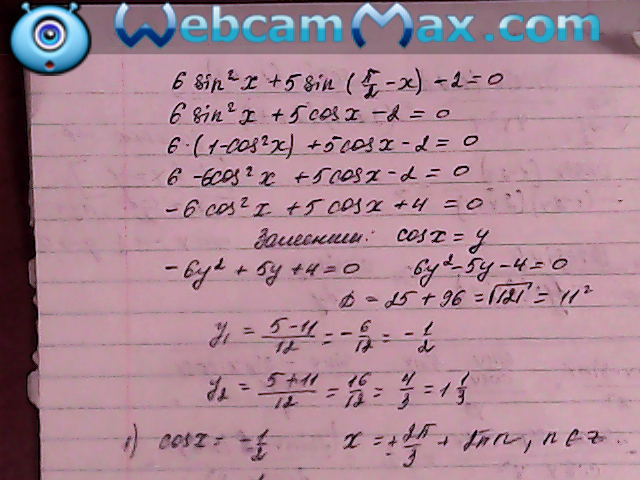 WebcamMax.com
6 sin² x + 5 sin (π/2 - x) - 2 = 0
6 sin² x + 5 cos x - 2 = 0
6·(1-cos²x) + 5cos x - 2 = 0
6 - 6cos² x + 5cos x - 2 = 0
- 6 cos² x + 5 cos x + 4 = 0
Заменим: cos x = y
- 6y² + 5y + 4 = 0 6y² - 5y - 4 = 0
D = 25 + 96 = √121 = 11²
y₁ = (5-11)/12 = - 6/12 = - 1/2
y₂ = (5+11)/12 = 16/12 = 4/3 = 1 1/3
1) cos x = - 1/2 x = ± 2π/3 + 2πn, n ∈ z